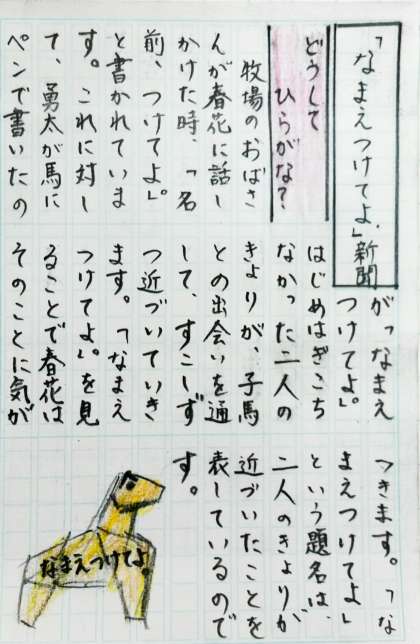 「なまえつけてよ。」新聞
どうして
ひらがな?
牧場のおばさ
んが春花に話し
かけた時、「名
前、つけてよ。」
と書かれていま
す。これに対し
て、勇太が馬に
ペンで書いたの
が「なまえ
つけてよ。」
はじめはぎこち
なかった二人の
きょりが、子馬
との出会いを通
して、すこしず
つ近づいていき
ます。「なまえ
つけてよ。」を見
ることで春花は
そのことに気が
つきます。「な
まえつけてよ」
という題名は、
二人のきょりが
近づいたことを
表しているので
す。
なまえつけてよ。